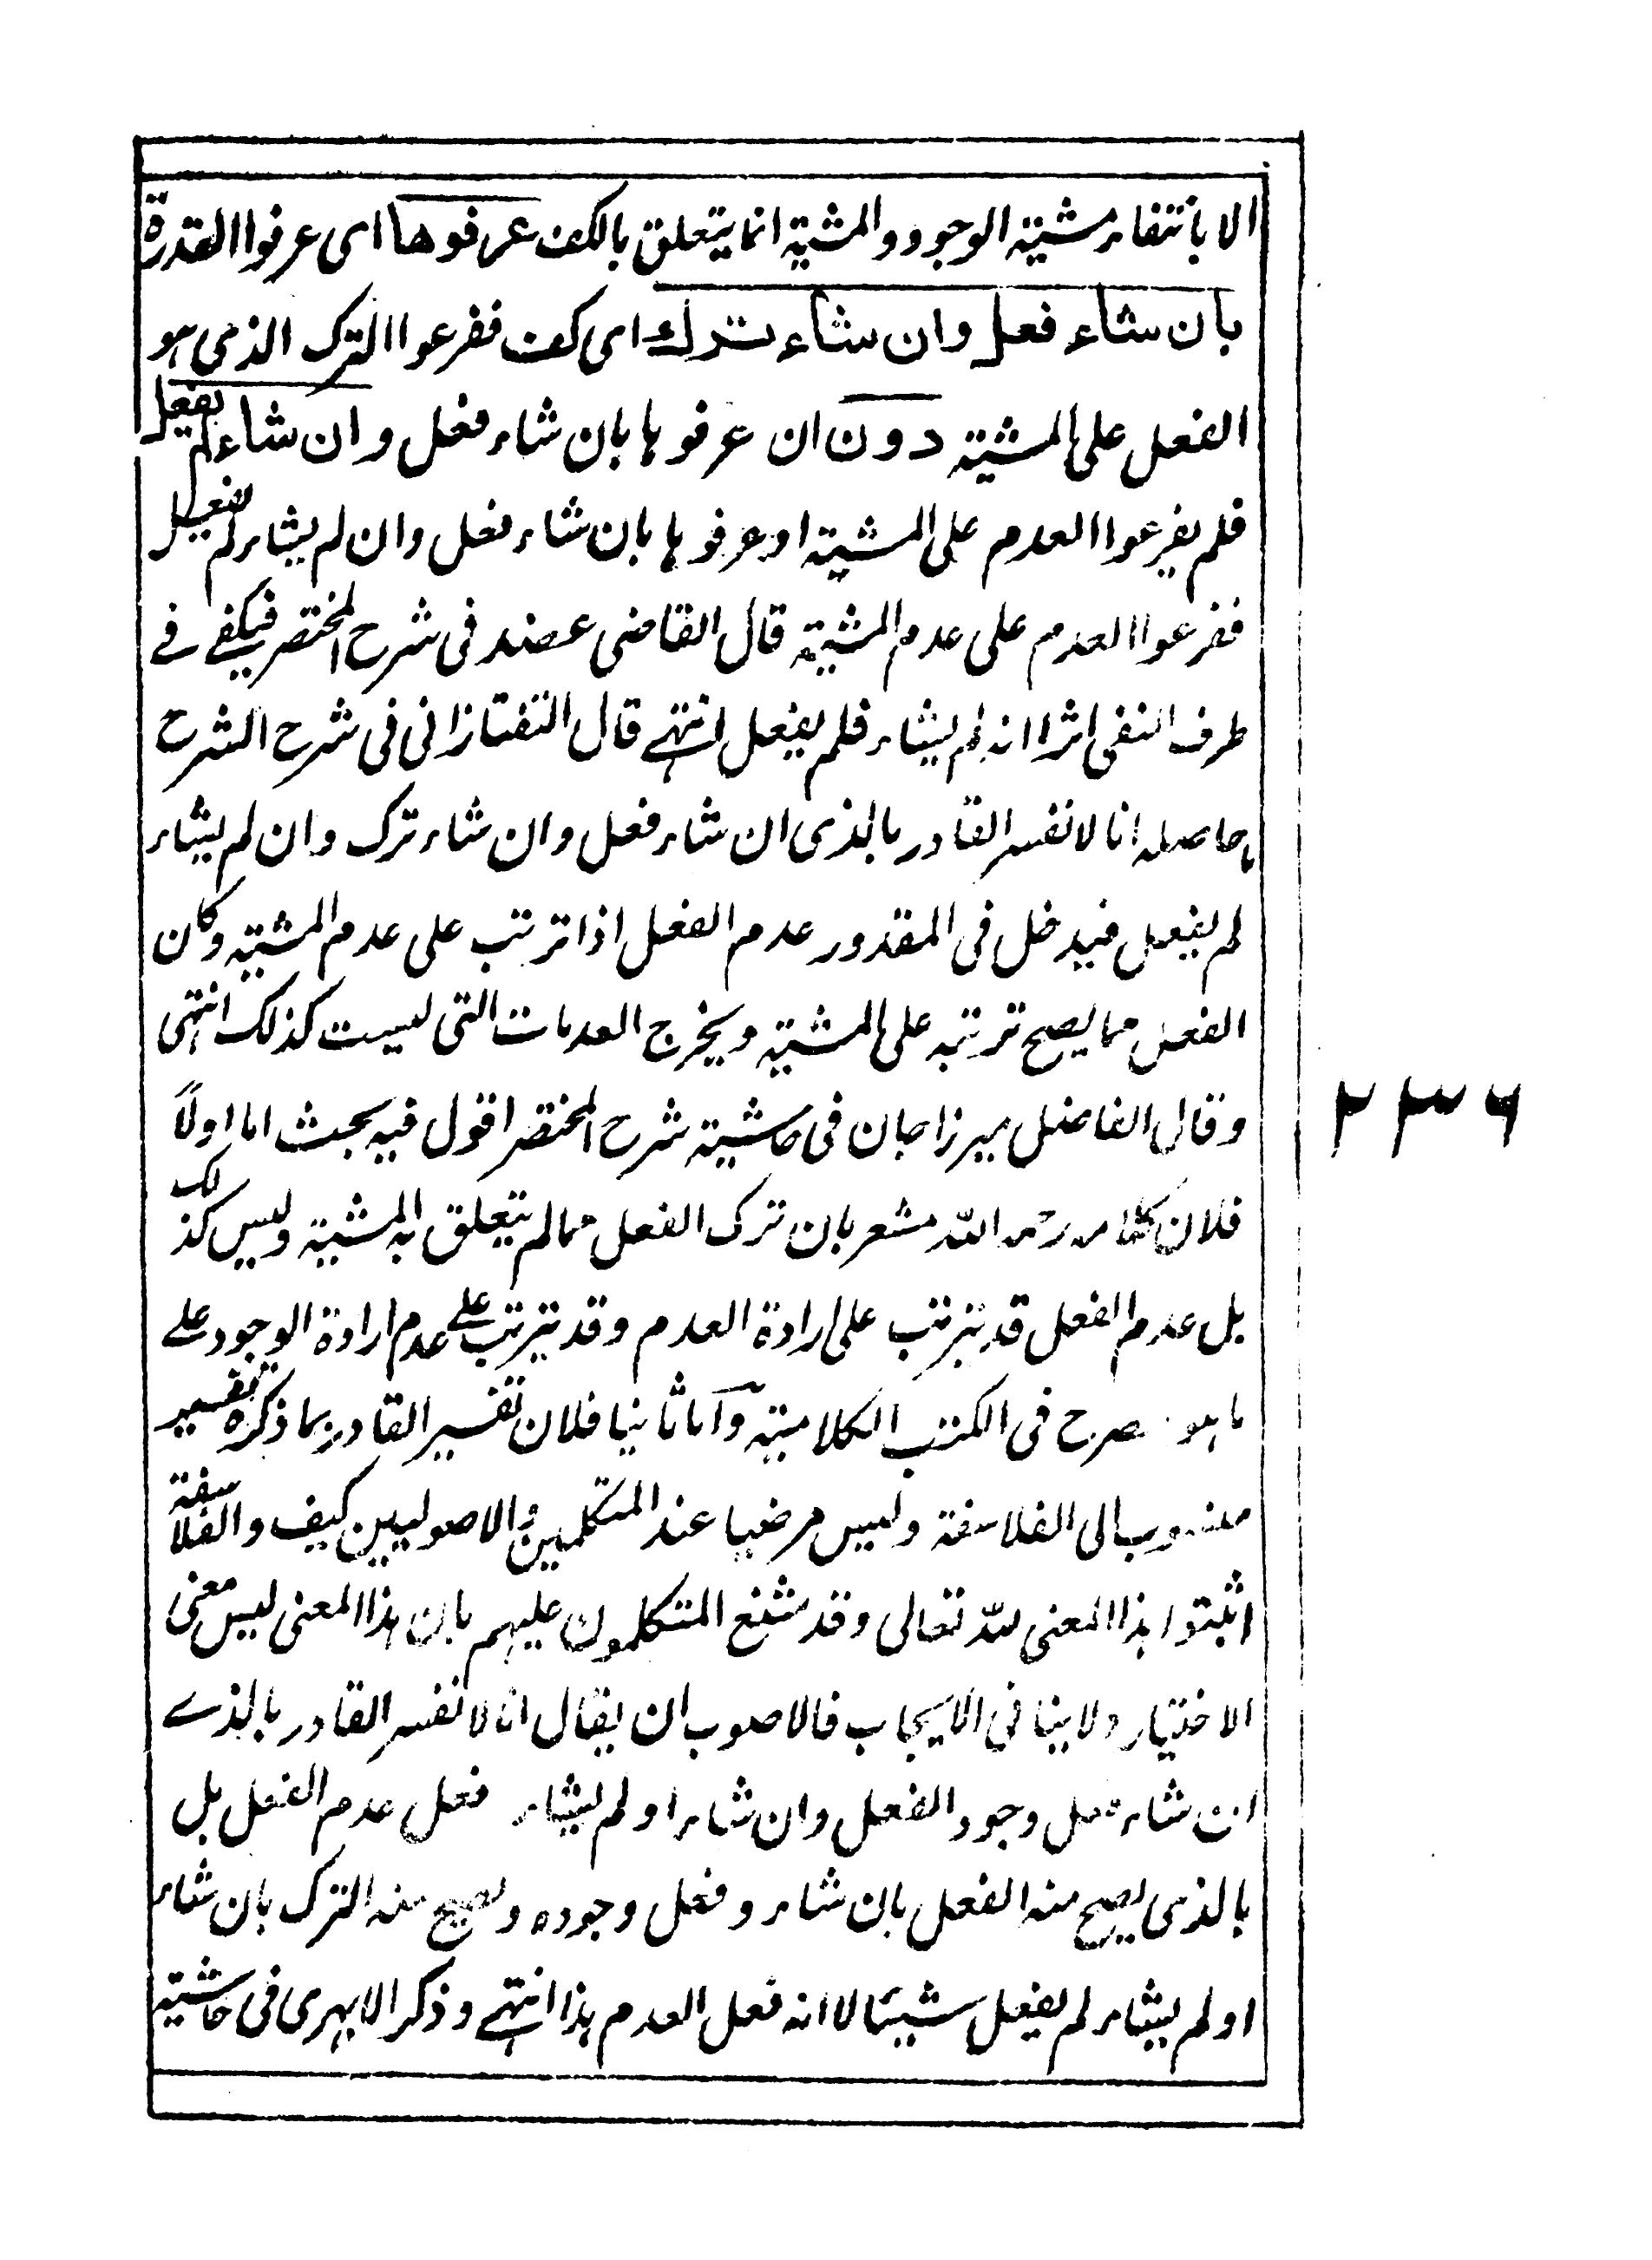 الا بانتفاء مشية الوجود والمشية انما يتعلق بالكف عرفوها اى عرفوا القدرة
بان شاء فعل وان شاء ترك اى كف ففرعوا الترك الذى هو
الفعل على المشية دون ان عرفوها بان شاء فعل وان شاء لم يفعل
فلم يفرعوا العدم على المشية او عرفوها بان شاء فعل وان لم يشاء لم يفعل
ففرعوا العدم على عدم المشية قال القاضى عضد فى شرح المختصر فيكفى فى
طرف النفى اثرا انه لم يشاء فلم يفعل انتهى قال التفتازانى فى شرح الشرح
ما حاصله انا لا نفسر القادر بالذى ان شاء فعل وان شاء ترك وان لم يشاء
لم يفعل فيدخل فى المقدور عدم الفعل اذا ترتب على عدم المشية وكان
الفعل مما يصح ترتبه على المشية ويخرج العدمات التى ليست كذلك انتهى
وقال الفاضل ميرزاجان فى حاشية شرح المختصر اقول فيه بحث اما اولاً
فلان كلامه رحمه الله مشعر بان ترك الفعل مما لم يتعلق به المشية وليس كذلك
بل عدم الفعل قد يترتب على ارادة العدم وقد يترتب على عدم ارادة الوجود على
ما هو مصرح فى الكتب الكلامية وآما ثانيا فلان تفسير القادر بما ذكره تفسير
منسوب الى الفلاسفة وليس مرضيا عند المتكلمين والاصوليين كيف والفلاسفة
اثبتوا هذا المعنى لله تعالى وقد شنع المتكلمون عليهم بان هذا المعنى ليس معنى
الاختيار ولا ينافى الايجاب فالاصوب ان يقال انا لا نفسر القادر بالذى
ان شاء فعل وجود الفعل وان شاء او لم يشاء فعل عدم الفعل بل
بالذى يصح منه الفعل بان شاء و فعل وجوده ويصح منه الترك بان شاء
او لم يشاء لم يفعل شيئا لا انه فعل العدم هذا انتهى وذكر الابهرى فى حاشية
٢٣٦